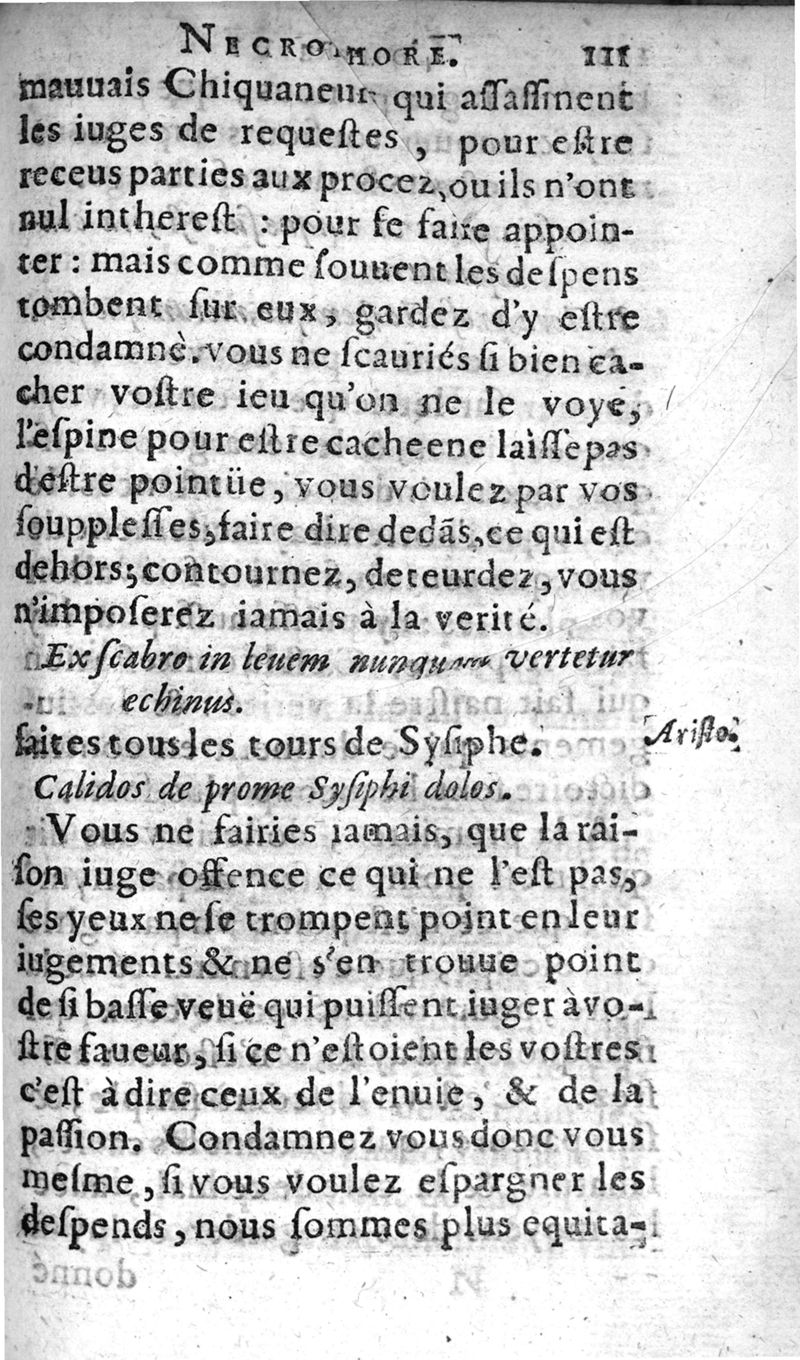 NECROMORE. 111
mauuais Chiquaneur qui aſſaſſinent
les iuges de requeſtes, pour eſtre
receus parties aux procez, ou ils n'ont
nul inthereſt : pour ſe faire appoin-
ter : mais comme ſouuent les deſpens
tombent ſur eux, gardez d'y eſtre
condamnè. vous ne ſcauriés ſi bien ca-
cher voſtre ieu qu'on ne le voye,
l'eſpine pour eſtre cacheene laiſſe pas
d'eſtre pointüe, vous voulez par vos
ſouppleſſes, faire dire dedãs, ce qui eſt
dehors; contournez, deteurdez, vous
n'impoſerez iamais à la verité.
Ex ſcabro in leuem nunquam vertetur
echinus.
faites tous les tours de Syſiphe.
Ariſto.
Calidos de prome Syſiphi dolos.
Vous ne fairies iamais, que la rai-
ſon iuge offence ce qui ne l'eſt pas,
ſes yeux ne ſe trompent point en leur
iugements & ne s'en trouue point
de ſi baſſe veuë qui puiſſent iuger à vo-
ſtre faueur, ſi ce n'eſtoient les voſtres
c'eſt à dire ceux de l'enuie, & de la
paſſion. Condamnez vous donc vous
meſme, ſi vous voulez eſpargner les
deſpends, nous ſommes plus equita-